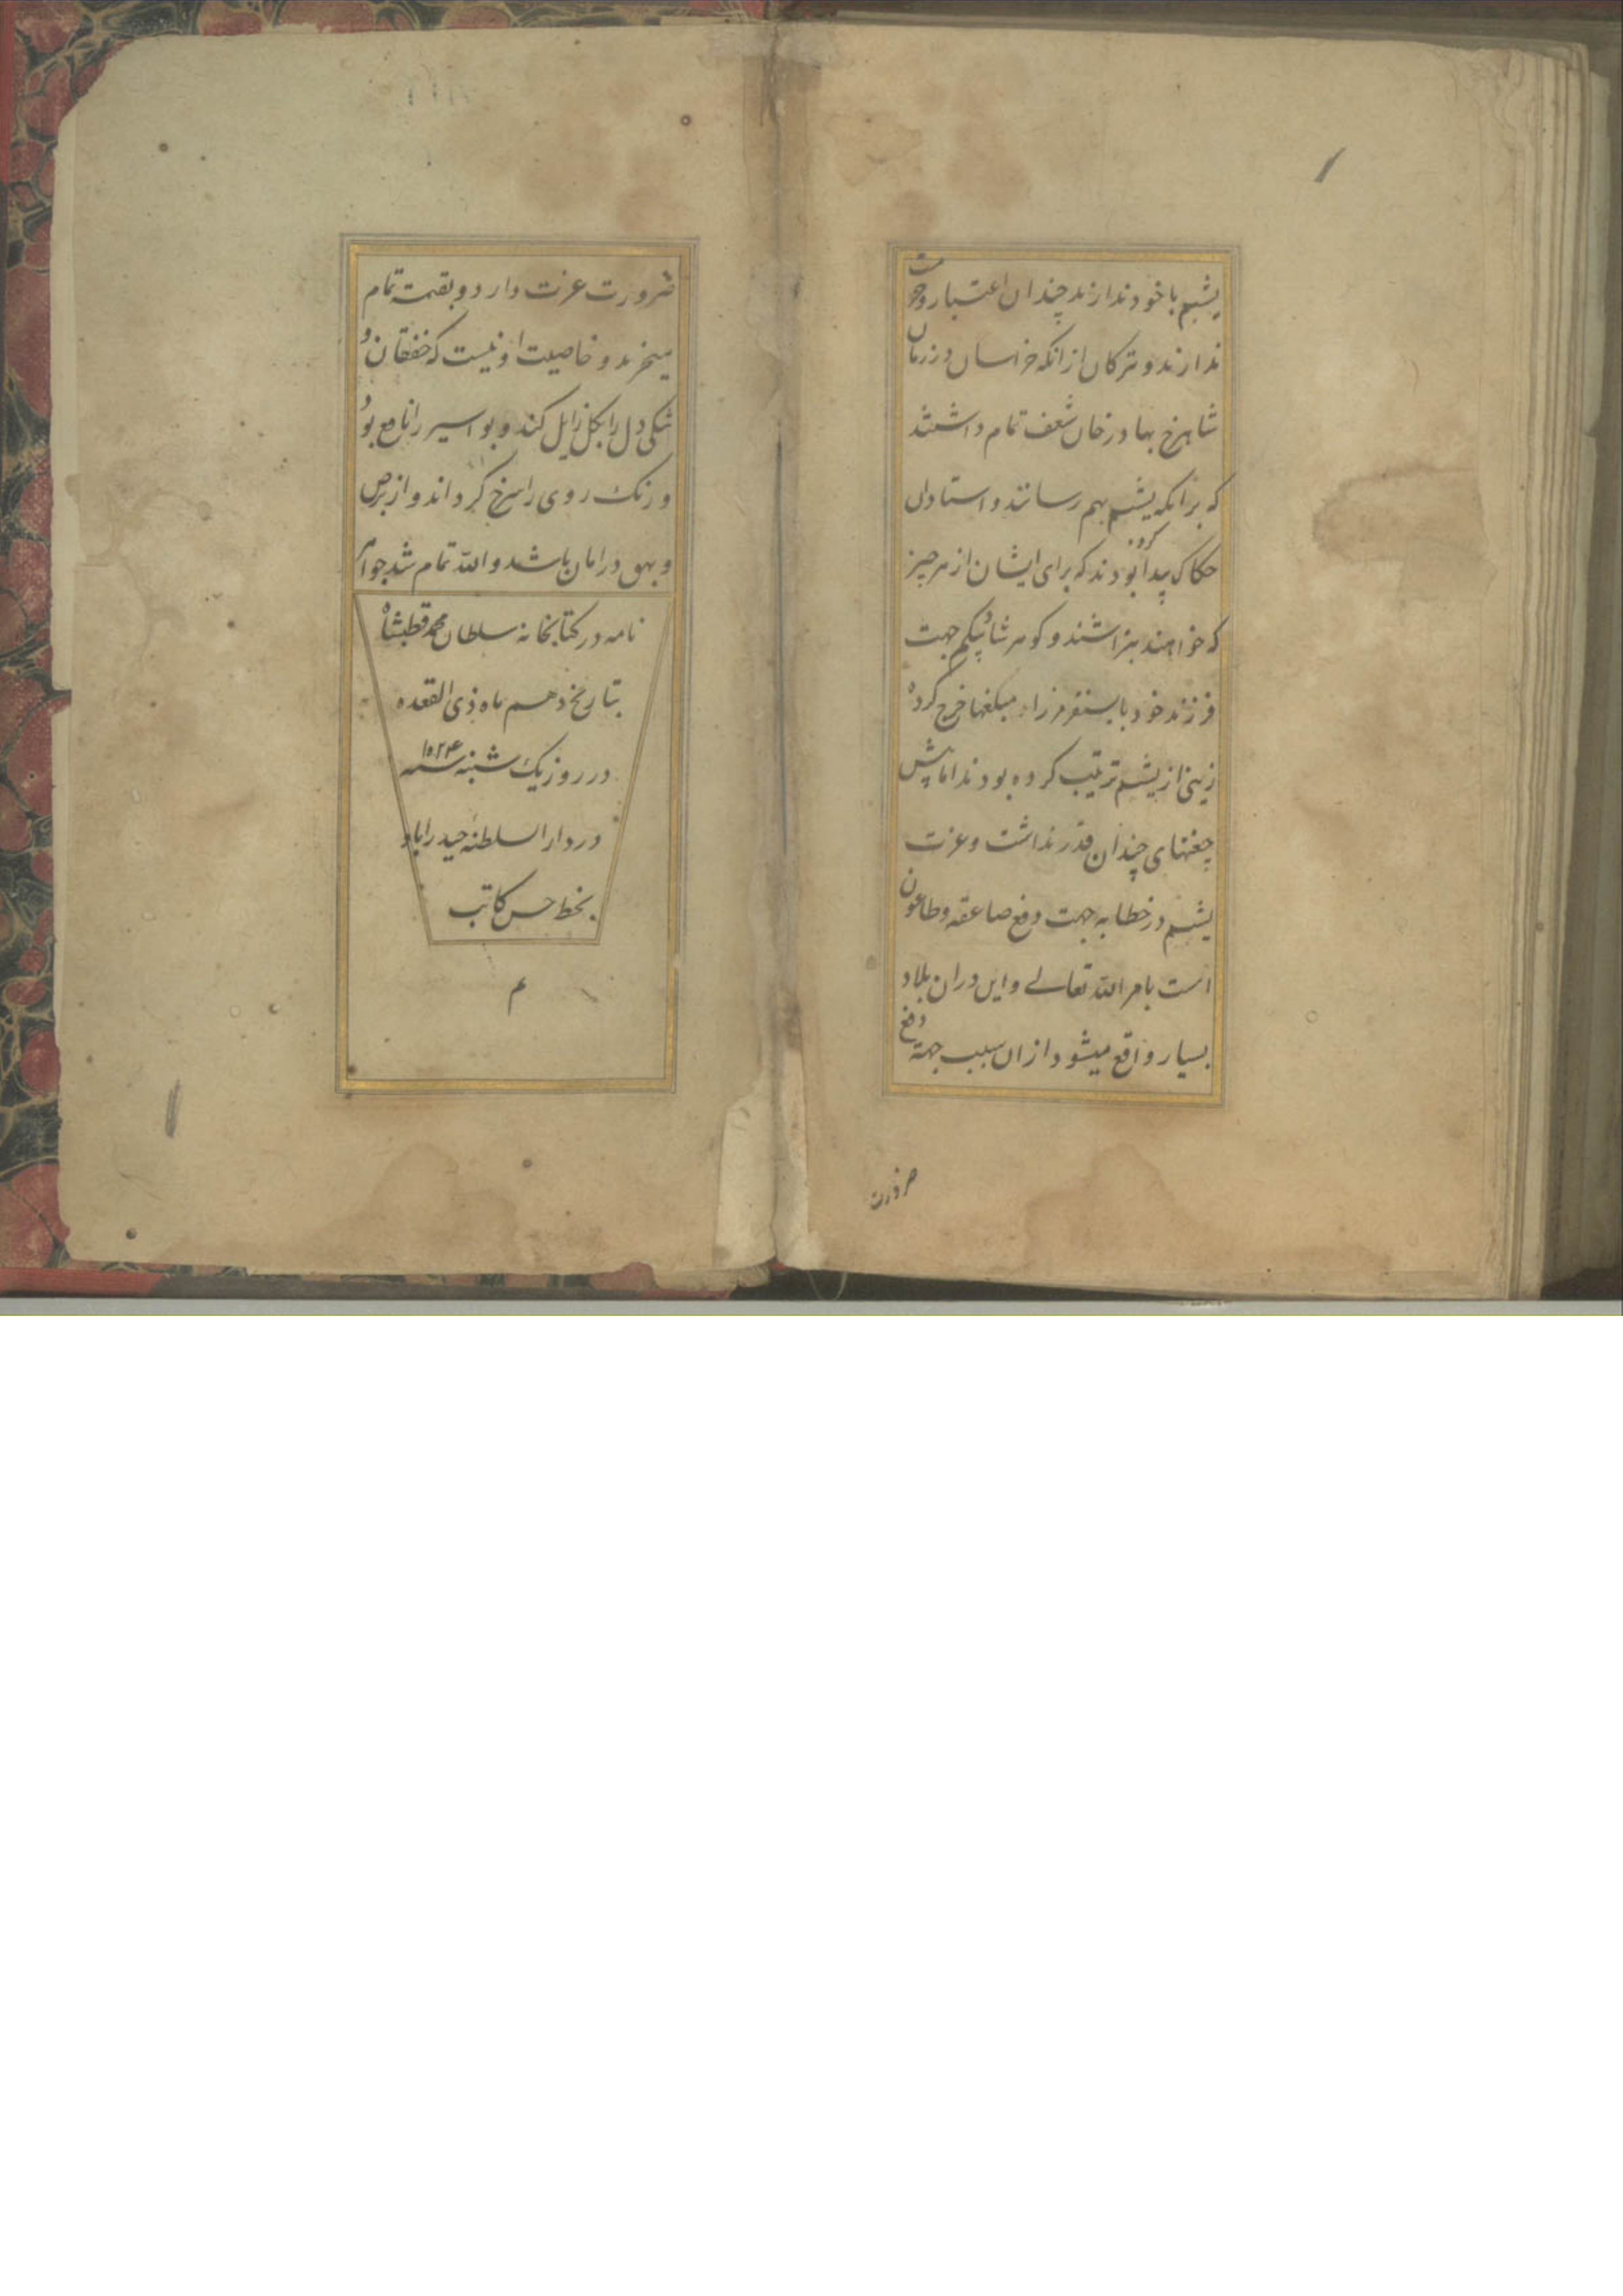 یشم با خود ندارند چندان اعتبار و حرمت
ندارند و ترکان از آنکه خراسان در زمان
شاهرخ بهادر خان شعف تمام داشتند
که بر انکه یشم بهم رسانند و استادان
حکاک پیدا کرده بودند که برای ایشان از هر چیز
که خواهند بتراشند و کوهرشاد بیکم جهت
فرزند خود بایسنقر مرزا مبلغها خرج کرده
زینی از یشم ترتیب کرده بودند اما پیش
جغتای چندان قدر نداشت و عزت
یشم در خطا به جهت دفع صاعقه و طاعون
است بامر الله تعالی و این دران بلاد
بسیار واقع میشود از ان سبب جهة دفع
ضرورت
ضرورت عزت دارد و بقیمة تمام
میخرند و خاصیت او نیست که خفقان و
تنکی دل را بکل زایل کند و بواسیر را نافع بود
و رنک روی را سرخ کرداند و از برص
و بهق در امان باشد والله تمام شد جواهر
نامه در کتابخانه سلطان محمد قطبشاه
بتاریخ دهم ماه ذی القعده
در روز یک شنبه سنه ۱۰۲۴
در دار السلطنه حیدراباد
بخط حسن کاتب
م